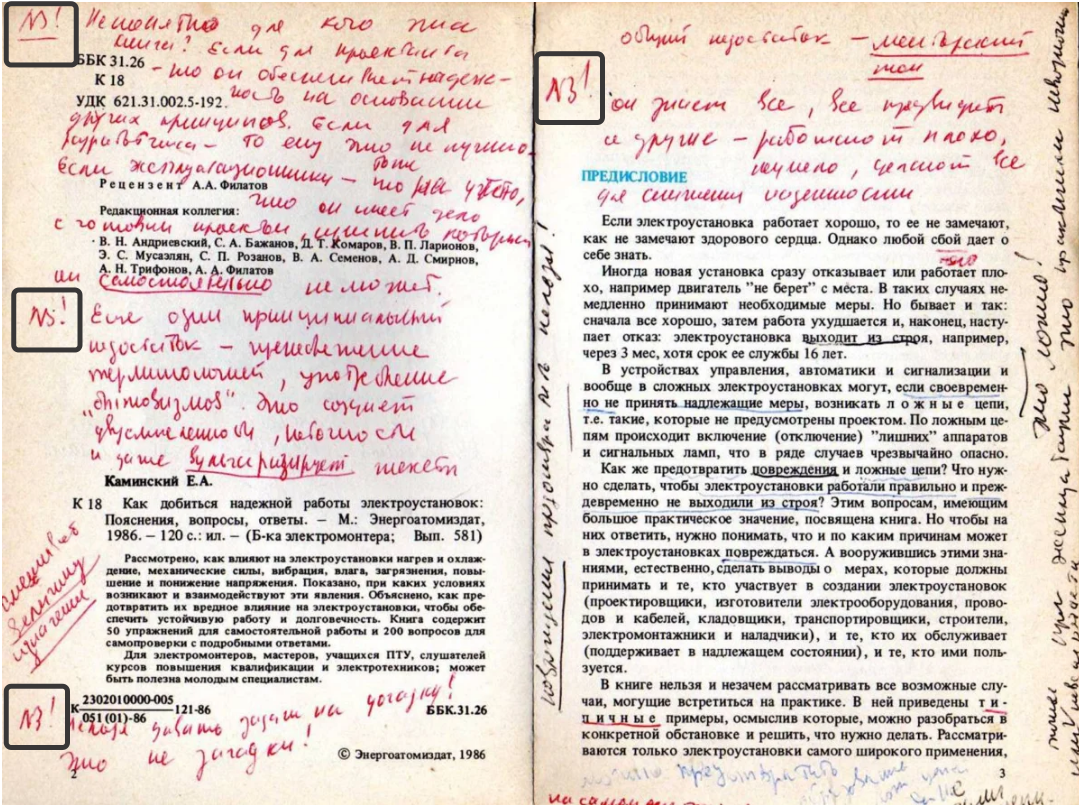 N3! Непонятно для кого эта
книга? Если для проектанта
ББК 31.26
К 18
- то он обеспечивает надеж-
УДК 621.31.002.5-192.
ность на основании
других принципов. Если для
то ему это не нужно.
Если эксплуатационники – то
Рецензент А.А. Филатов
Редакционная коллегия:
это он имеет дело
с готовым проектом, изменить который
В. Н. Андриевский, С. А. Бажанов, Д. Т. Комаров, В. П. Ларионов,
Э. С. Мусаэлян, С. П. Розанов, В. А. Семенов, А. Д. Смирнов,
А. Н. Трифонов, А. А. Филатов
он самостоятельно не может.
N3! Еще один принципиальный
недостаток –
терминологией, употребление
Это создает
двусмысленности, неточности
и даже вульгаризирует тексты
Каминский Е.А.
К 18 Как добиться надежной работы электроустановок:
Пояснения, вопросы, ответы. – М.: Энергоатомиздат,
1986. – 120 с.: ил. – (Б-ка электромонтера; Вып. 581)
Рассмотрено, как влияют на электроустановки нагрев и охлаж-
дение, механические силы, вибрация, влага, загрязнения, повы-
шение и понижение напряжения. Показано, при каких условиях
возникают и взаимодействуют эти явления. Объяснено, как пре-
дотвратить их вредное влияние на электроустановки, чтобы обе-
спечить устойчивую работу и долговечность. Книга содержит
50 упражнений для самостоятельной работы и 200 вопросов для
самопроверки с подробными ответами.
Для электромонтеров, мастеров, учащихся ПТУ, слушателей
курсов повышения квалификации и электротехников; может
быть полезна молодым специалистам.
К 2302010000-005
051(01)-86
121-86
ББК.31.26
N3! Нельзя давать задачи на догадку!
Это не загадки!
© Энергоатомиздат, 1986
2
общий недостаток – менторский
тон
N3! он знает все, все предвидит
а другие – работают плохо,
неумело, делают все
для снижения надежности
ПРЕДИСЛОВИЕ
Если электроустановка работает хорошо, то ее не замечают,
как не замечают здорового сердца. Однако любой сбой дает о
себе знать.
Иногда новая установка сразу отказывает или работает пло-
хо, например двигатель "не берет" с места. В таких случаях не-
медленно принимают необходимые меры. Но бывает и так:
сначала все хорошо, затем работа ухудшается и, наконец, насту-
пает отказ: электроустановка выходит из строя, например,
через 3 мес, хотя срок ее службы 16 лет.
В устройствах управления, автоматики и сигнализации и
вообще в сложных электроустановках могут, если своевремен-
но не принять надлежащие меры, возникать ложные цепи,
т.е. такие, которые не предусмотрены проектом. По ложным це-
пям происходит включение (отключение) "лишних" аппаратов
и сигнальных ламп, что в ряде случаев чрезвычайно опасно.
Как же предотвратить повреждения и ложные цепи? Что нуж-
но сделать, чтобы электроустановки работали правильно и преж-
девременно не выходили из строя? Этим вопросам, имеющим
большое практическое значение, посвящена книга. Но чтобы на
них ответить, нужно понимать, что и по каким причинам может
в электроустановках повреждаться. А вооружившись этими зна-
ниями, естественно, сделать выводы о мерах, которые должны
принимать и те, кто участвует в создании электроустановок
(проектировщики, изготовители электрооборудования, прово-
дов и кабелей, кладовщики, транспортировщики, строители,
электромонтажники и наладчики), и те, кто их обслуживает
(поддерживает в надлежащем состоянии), и те, кто ими поль-
зуется.
В книге нельзя и незачем рассматривать все возможные слу-
чаи, могущие встретиться на практике. В ней приведены ти-
пичные примеры, осмыслив которые, можно разобраться в
конкретной обстановке и решить, что нужно делать. Рассматри-
ваются только электроустановки самого широкого применения,
3
можно предотвратить